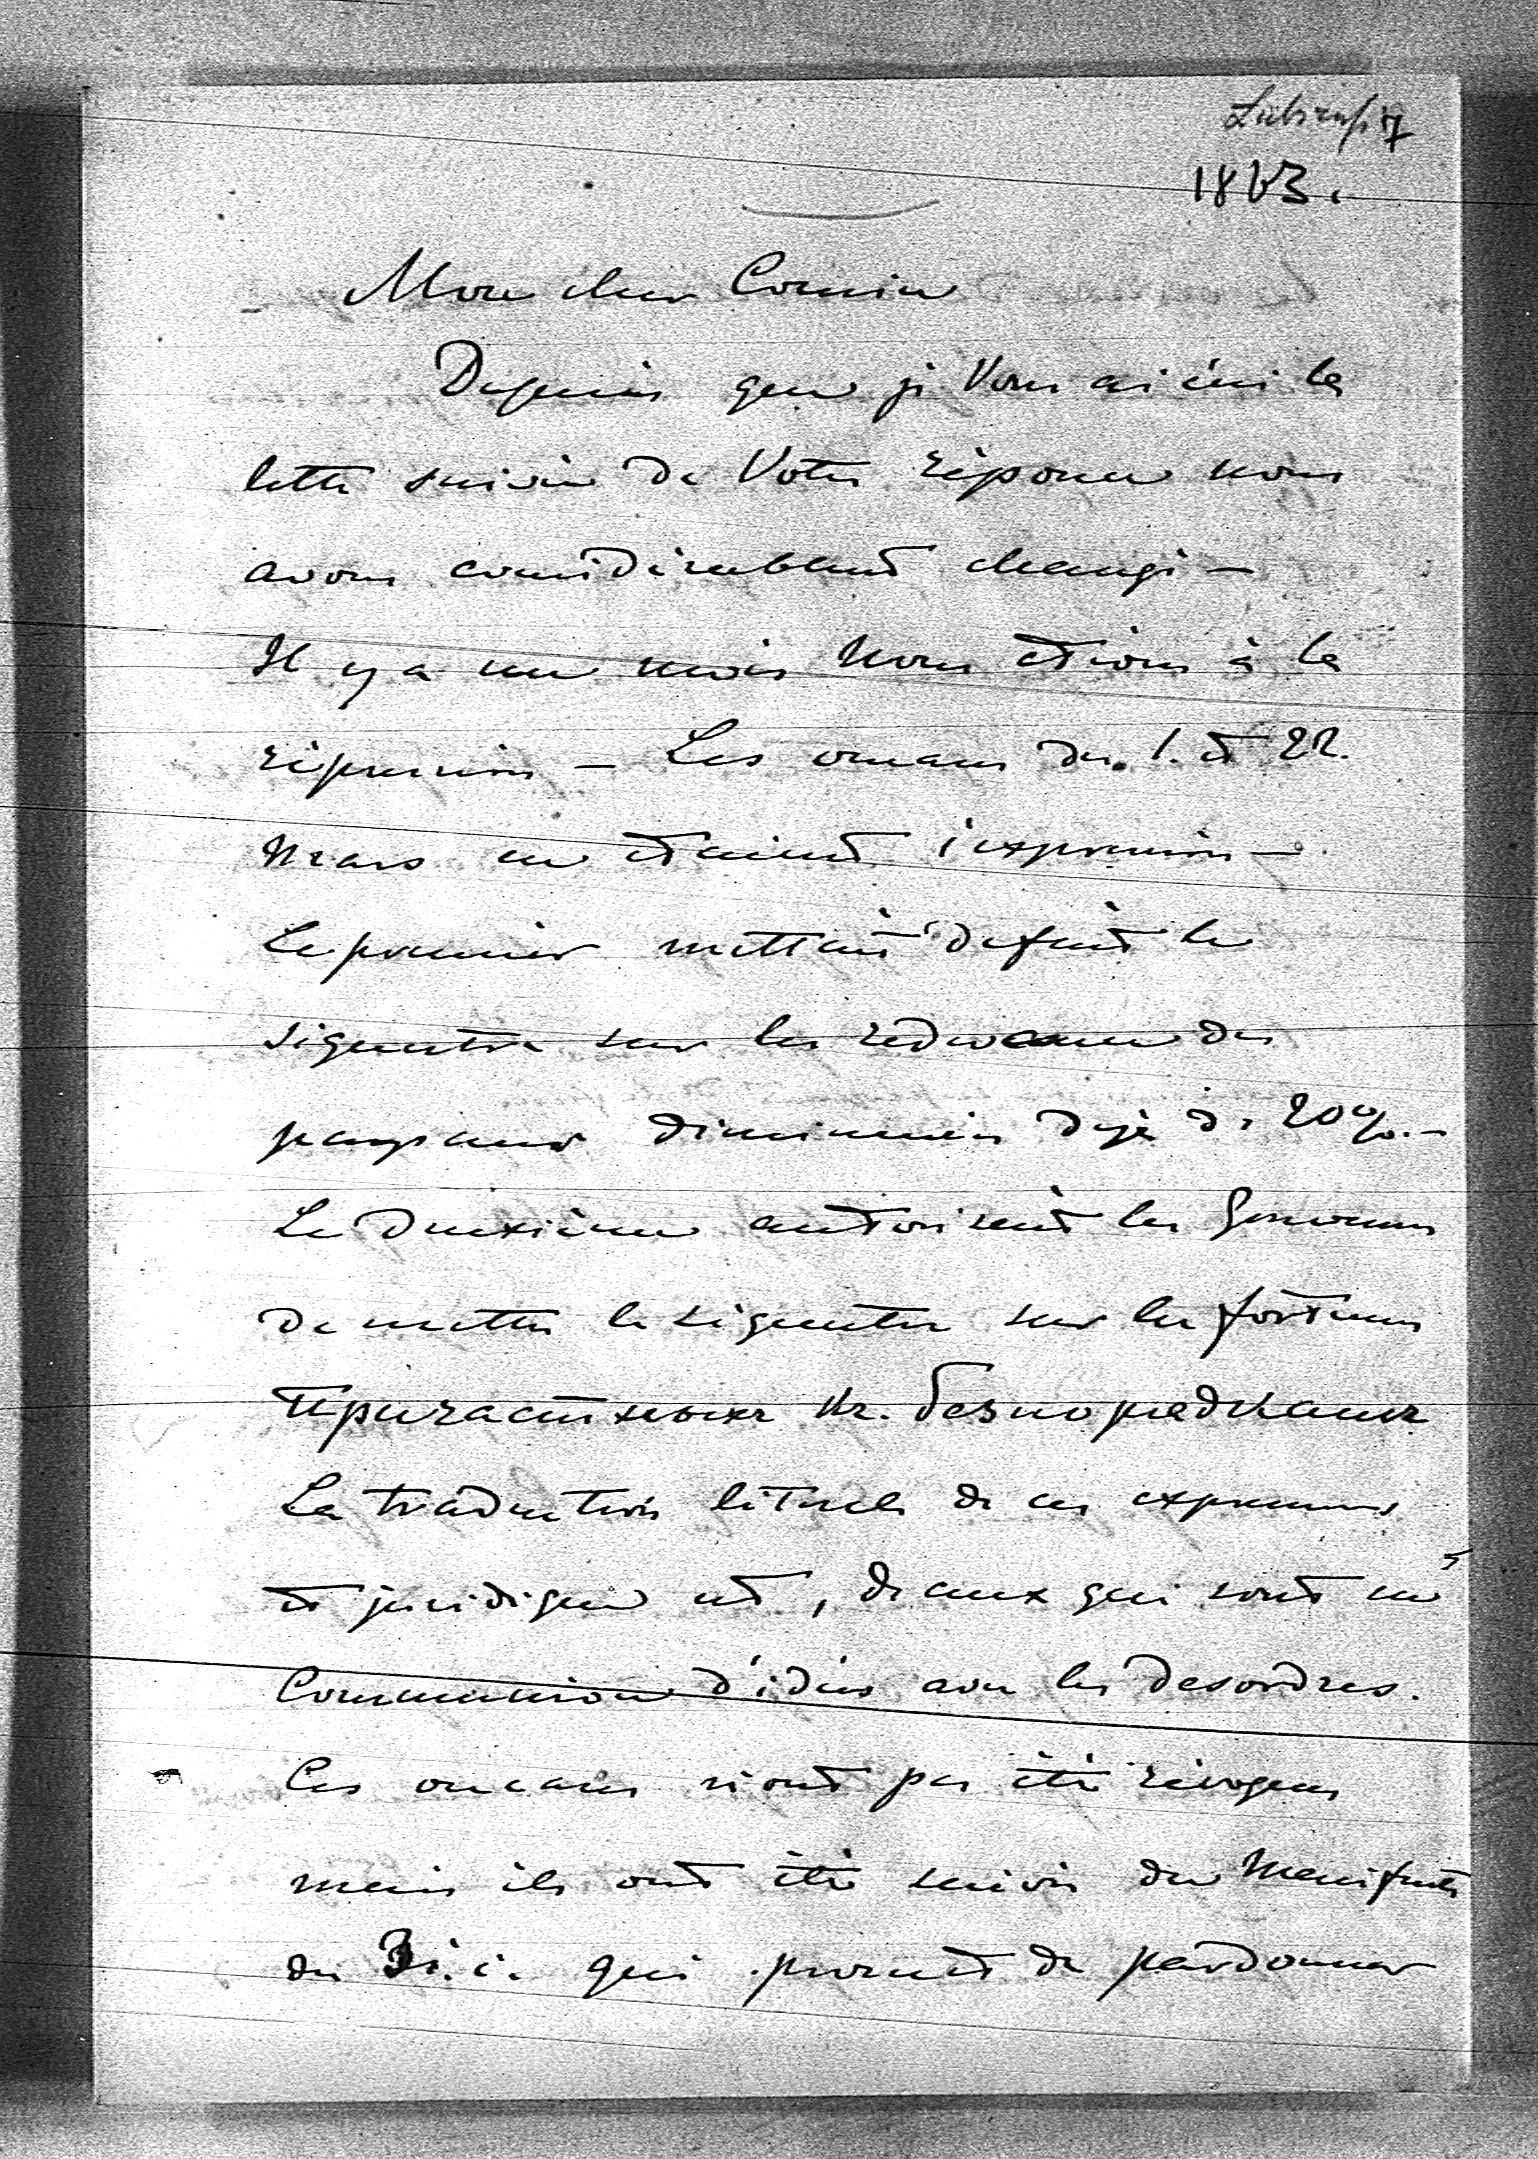 1863.
Mon cher Cousin
Depuis que je Vous ai écris la
lettre suivie de Votre réponse nous
avons considérablement changé —
Il y a un mois nous étions à la
répression — Les oucases du 1. et 22.
Mars en étaient l'expression —
Le premier mettait de fait le
séquestre sur les redevances des
paysans diminuées déjà de 20%. —
Le deuxième autorisait les Gouverneurs
de mettre le séquestre sur les fortunes
причастныхъ къ безпорядкамъ
La traduction litérale de ces expressions
et juridique est, de ceux qui sont en
Communion d'idées avec les desordres.
Ces oucases n'ont pas été révoqués
mais ils ont été suivis du Manifeste
du 31. qui promet de pardonner